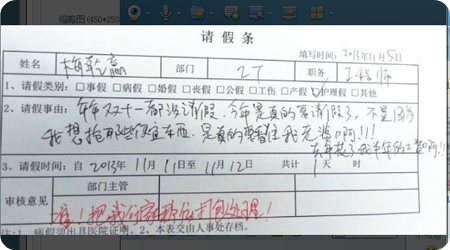 缩略图(450*250
请假条
填写时间：2013年11月5日
姓名 梅乾赢 部门 IT 职务 工程师
1、请假类别：□事假 □病假 □婚假 □丧假 □公假 □工伤 □产假 护理假 □其他
2、请假事由：年年双十一都没请假，今年是真的要请假了，不是因为
我想抢那些便宜东西，是真的要看住我老婆啊!!!
去年花了我半年的工资啊!!
3、请假时间：自 2013年 11月 11日至 11月 12日 共计 1天 时
审核意见 部门主管
准！把我们家那位打包处理！
注：1、病假须出具医院证明。2、本表交由人事处存档。